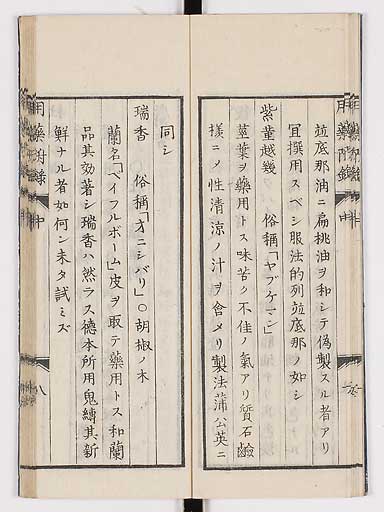 竝底那油ニ扁桃油ヲ和シテ偽製スル者アリ
冝撰用スベシ服法的列竝底那ノ如シ
紫菫越幾ス 俗稱「ヤブケマン」
莖葉ヲ藥用トス味苦ク不佳ノ氣アリ質石鹼
樣ニノ性清涼ノ汁ヲ含メリ製法蒲公英ニ
同シ
瑞香 俗稱「オニシバリ」〇胡椒ノ木
蘭名「ペイフルボーム」皮ヲ取テ藥用トス和蘭
品其効著シ瑞香ハ然ラス德本所用鬼縛其新
鮮ナル者如何ン未タ試ミズ
用藥附錄 中 八